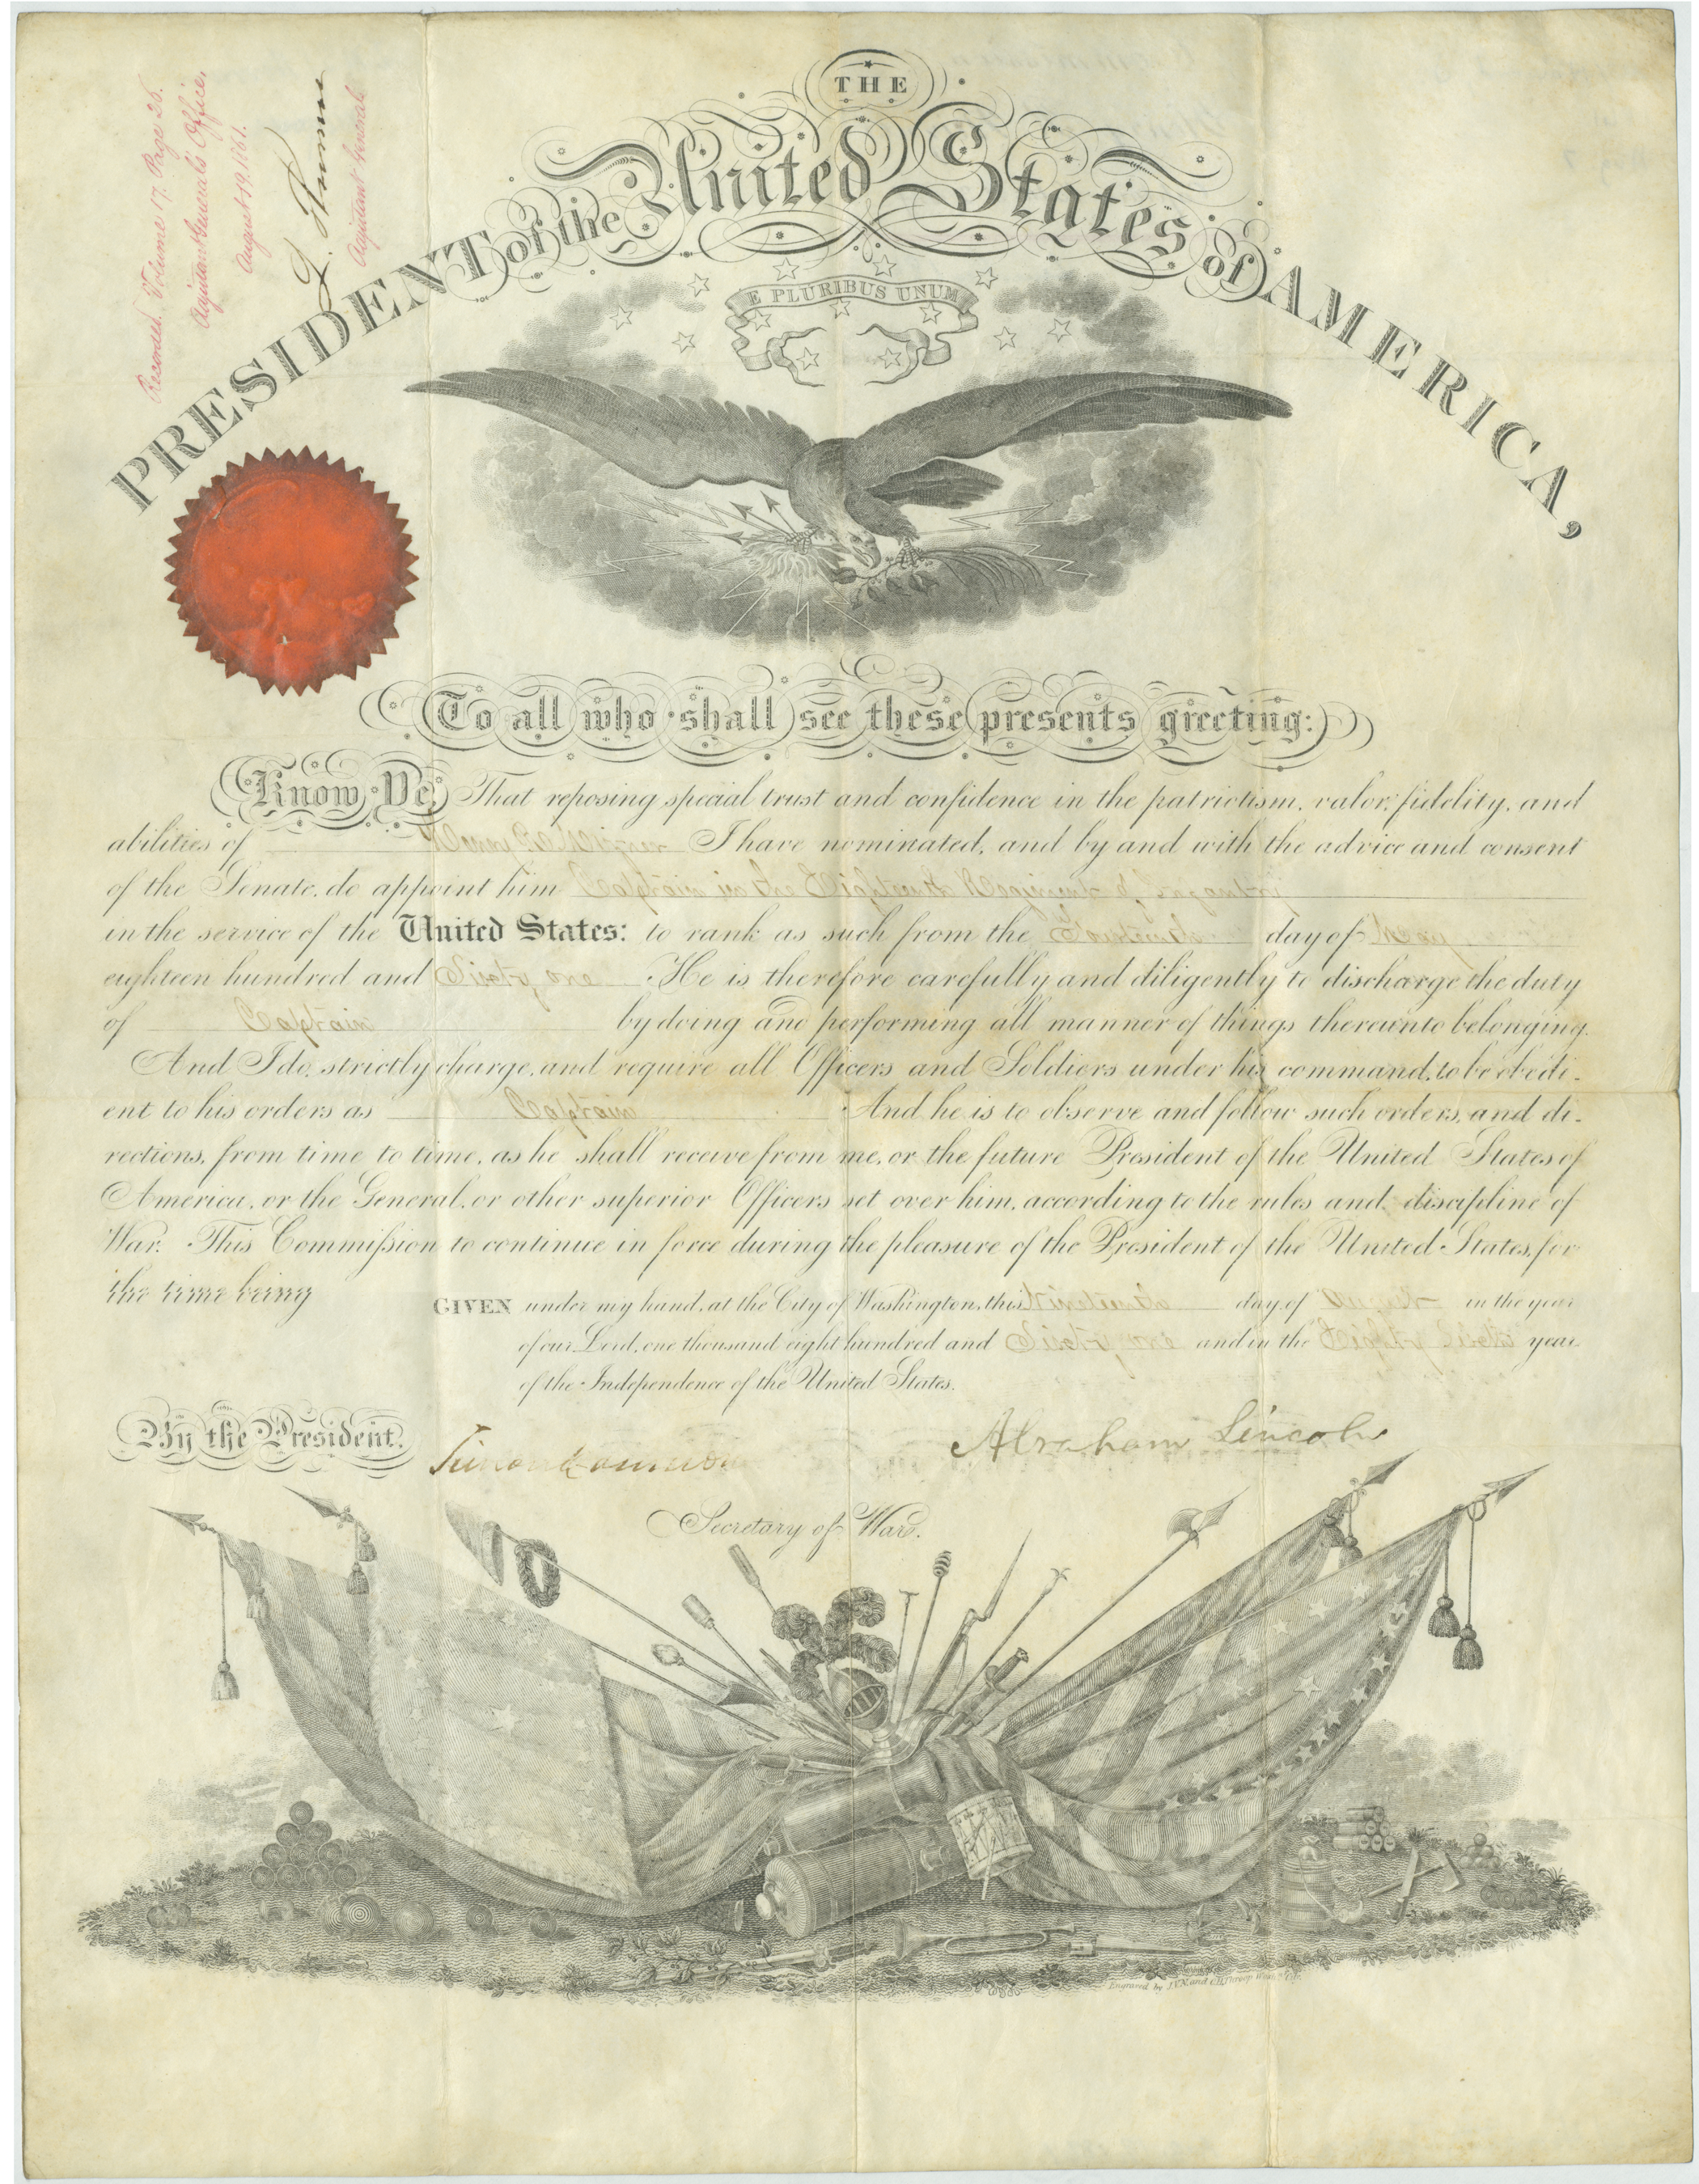 Recorded. Volume 17. Page 26.
Adjutant General's Office,
August 19. 1861.
L. Thomas
Adjutant General
THE
PRESIDENT of the United States of AMERICA,
E PLURIBUS UNUM
To all who shall see these presents greeting:
Know Ye, That reposing special trust and confidence in the patriotism, valor, fidelity, and
abilities of Henry I have nominated, and by and with the advice and consent
of the Senate, do appoint him Captain in the Eighteenth Regiment of Infantry
in the service of the United States: to rank as such from the Fourteenth day of May
eighteen hundred and Sixty one He is therefore carefully and diligently to discharge the duty
of Captain by doing and performing all manner of things thereunto belonging.
And I do, strictly charge, and require all Officers and Soldiers under his command, to be obedi-
ent to his orders as Captain And he is to observe and follow such orders, and di-
rections, from time to time, as he shall receive from me, or the future President of the United States of
America, or the General, or other superior Officers set over him, according to the rules and discipline of
War. This Commission to continue in force during the pleasure of the President of the United States, for
the time being
GIVEN under my hand, at the City of Washington, this Nineteenth day of August in the year
of our Lord, one thousand eight hundred and Sixty one and in the Eighty Sixth year
of the Independence of the United States.
By the President.
Abraham Lincoln
Simon Cameron
Secretary of War.
Engraved by J.V.N. and O.H. Throop